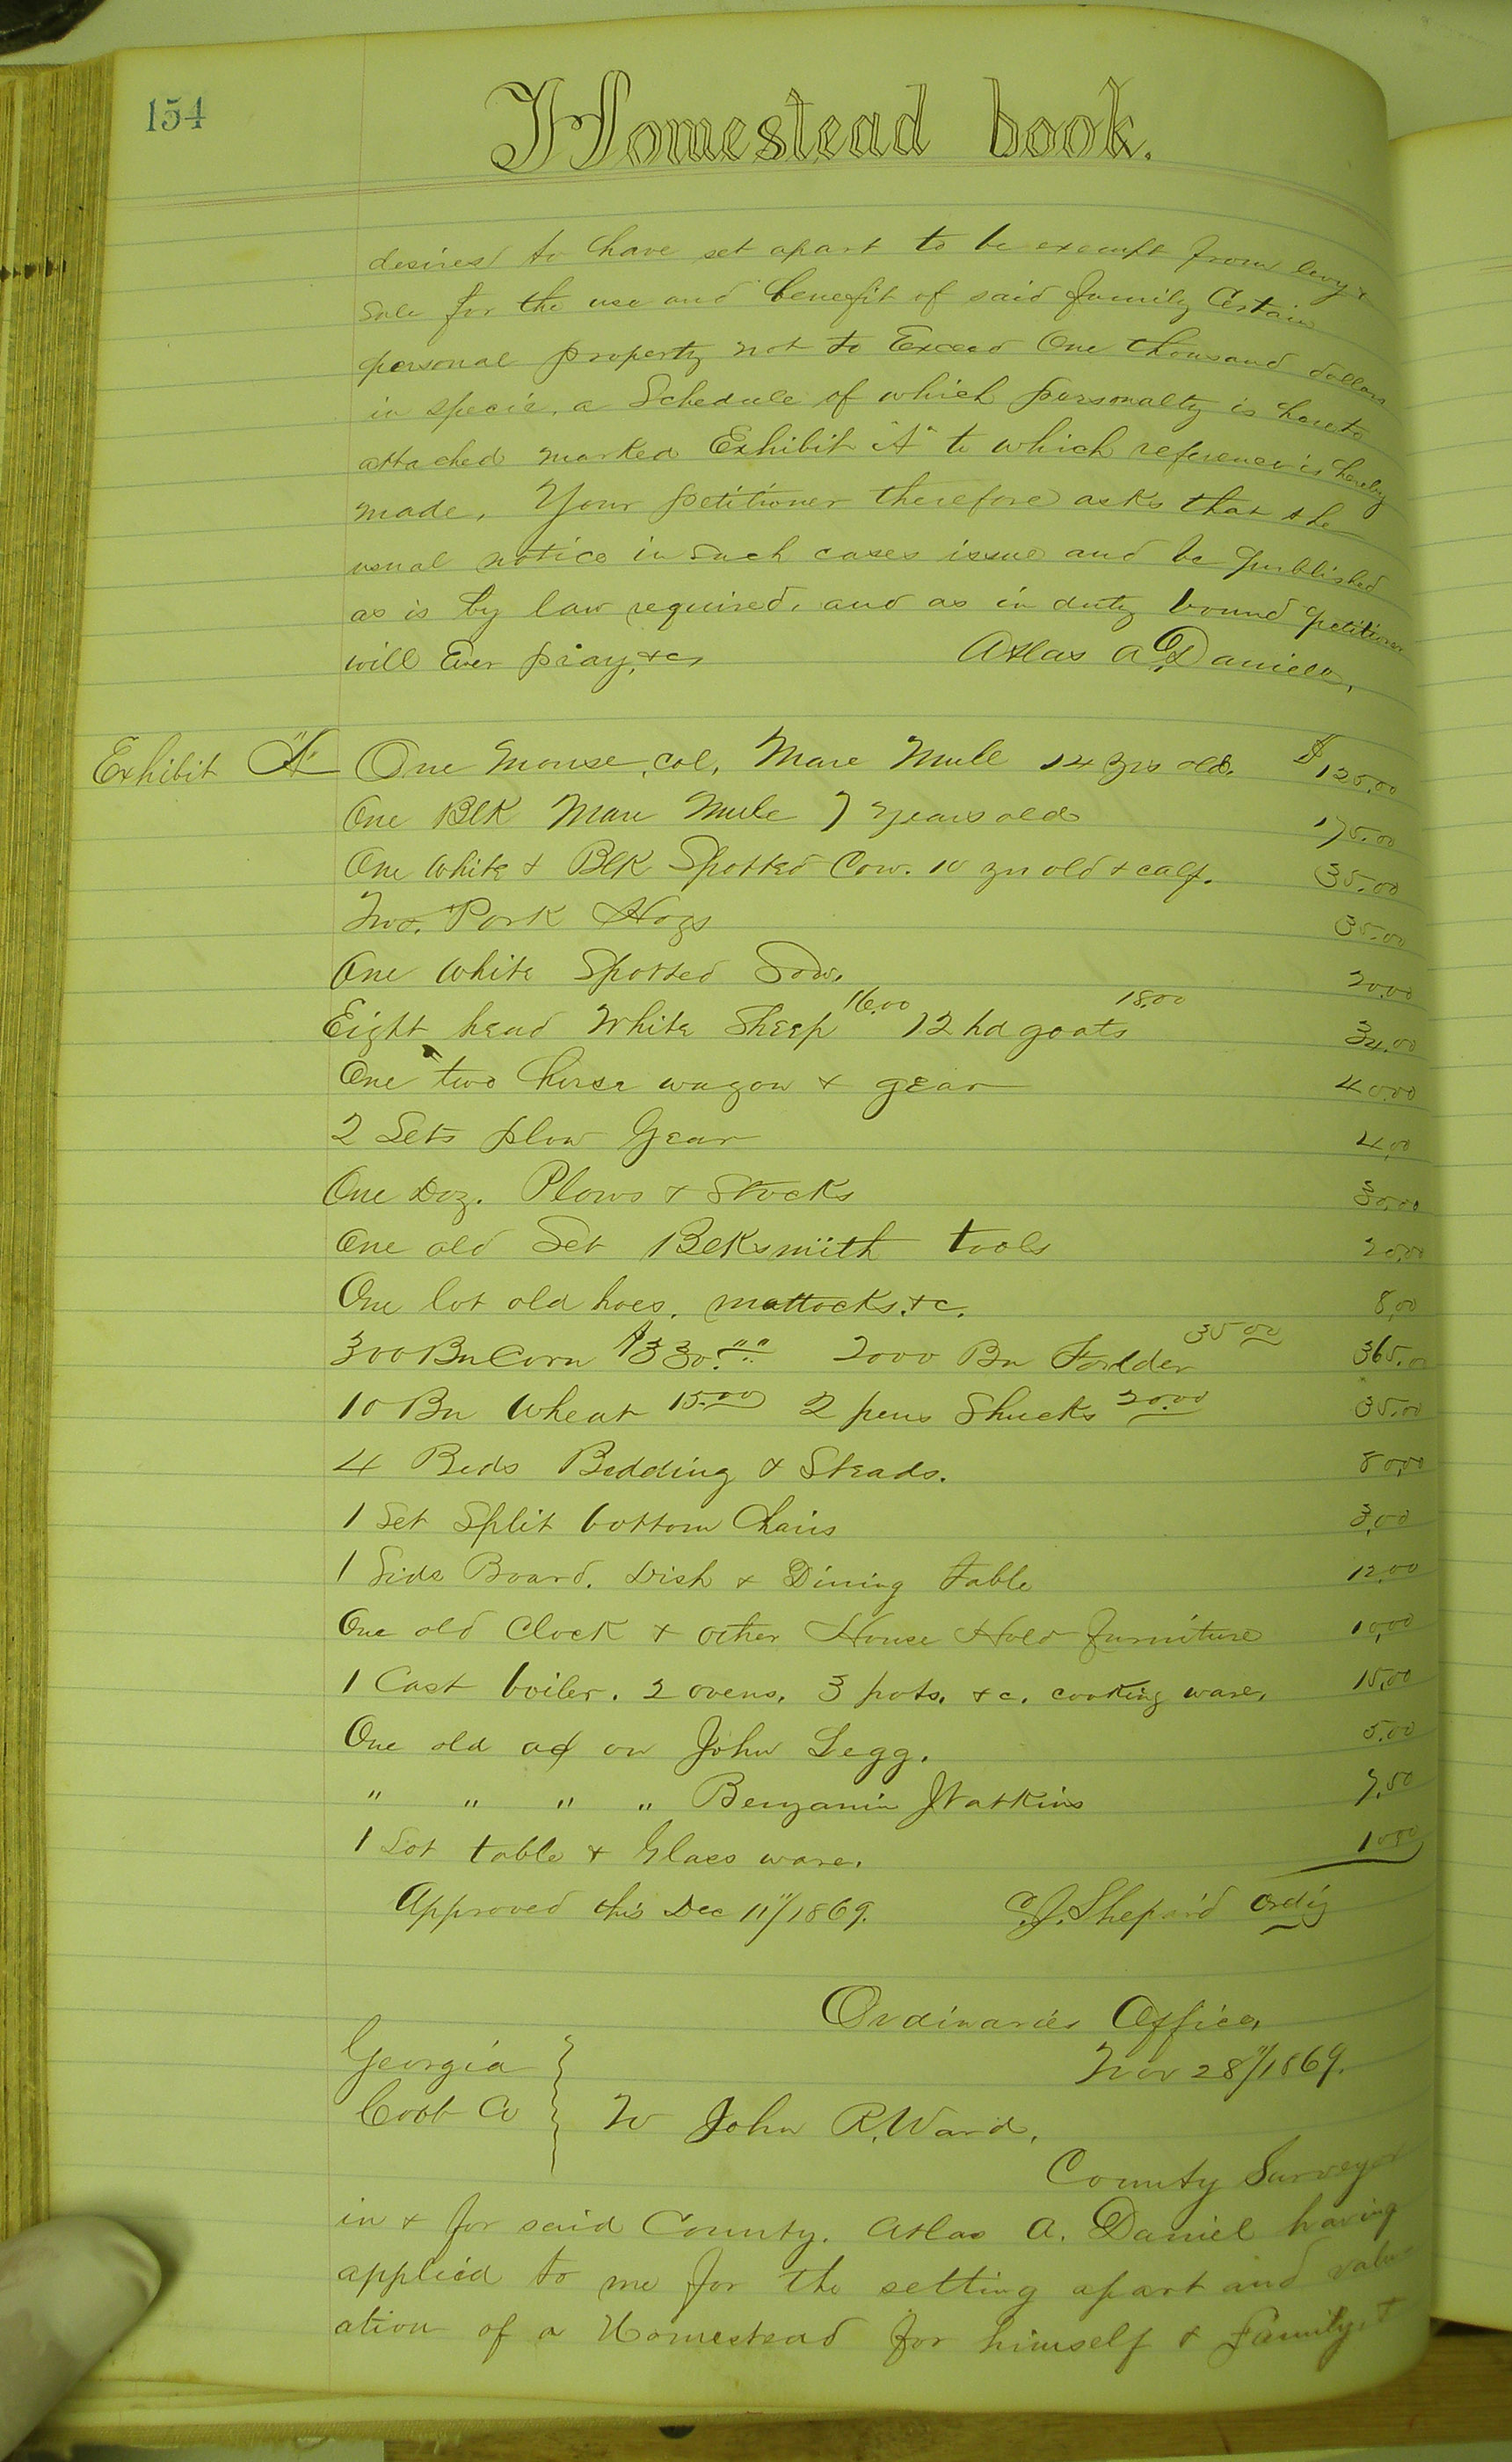 154
Homestead book.
desires to have set apart to be exempt from levy &
Sale for the use and benefit of said family Certain
personal property not to Exceed One thousand dollars
in specie, a Schedule of which personalty is hereto
attached marked Exhibit "A" to which reference is hereby
made, Your petitioner therefore asks that the
usual notice in such cases issue and be published
as is by law required, and as in duty bound petitioner
will Ever pray, &c, Atlas A Daniell,
Exhibit "A" One mouse, col, Mare Mule 14 yrs old. $125.00
One Blk Mare Mule 7 years old 175.00
One White & Blk Spotted Cow. 10 yrs old & calf. 35.00
Two. Pork Hogs 35.00
One White Spotted Sow. 20.00
Eight head White Sheep 16.00 12 hd goats 18.00 34.00
One two horse wagon & gear 40.00
2 Sets plow Gear 4.00
One Doz. Plows & Stocks 30.00
One old Set Blksmith tools 20.00
One lot old hoes, mattocks, &c. 8.00
300 Bu Corn $330.00 2000 Bn Fodder 35.00 365.00
10 Bu Wheat 15.00 2 pens Shucks 20.00 35.00
4 Beds Bedding & Steads. 80.00
1 Set Split bottom Chairs 3.00
1 Side Board. Dish & Dining table 12.00
One old Clock & other House Hold furniture 10.00
1 Cast boiler. 2 ovens, 3 pots, &c. cooking ware, 15.00
One old on John Legg. 5.00
" " " " Benjamin Watkins 7.50
1 Lot table & Glass ware. 10.00
Approved this Dec 11"/1869. C.J. Shepard Ordy
Ordinaries Office,
Georgia Nov 28"/1869.
Cobb Co To John R. Ward,
County Surveyor
in & for said County. Atlas A. Daniel having
applied to me for the setting apart and valu
ation of a Homestead for himself & Family, &